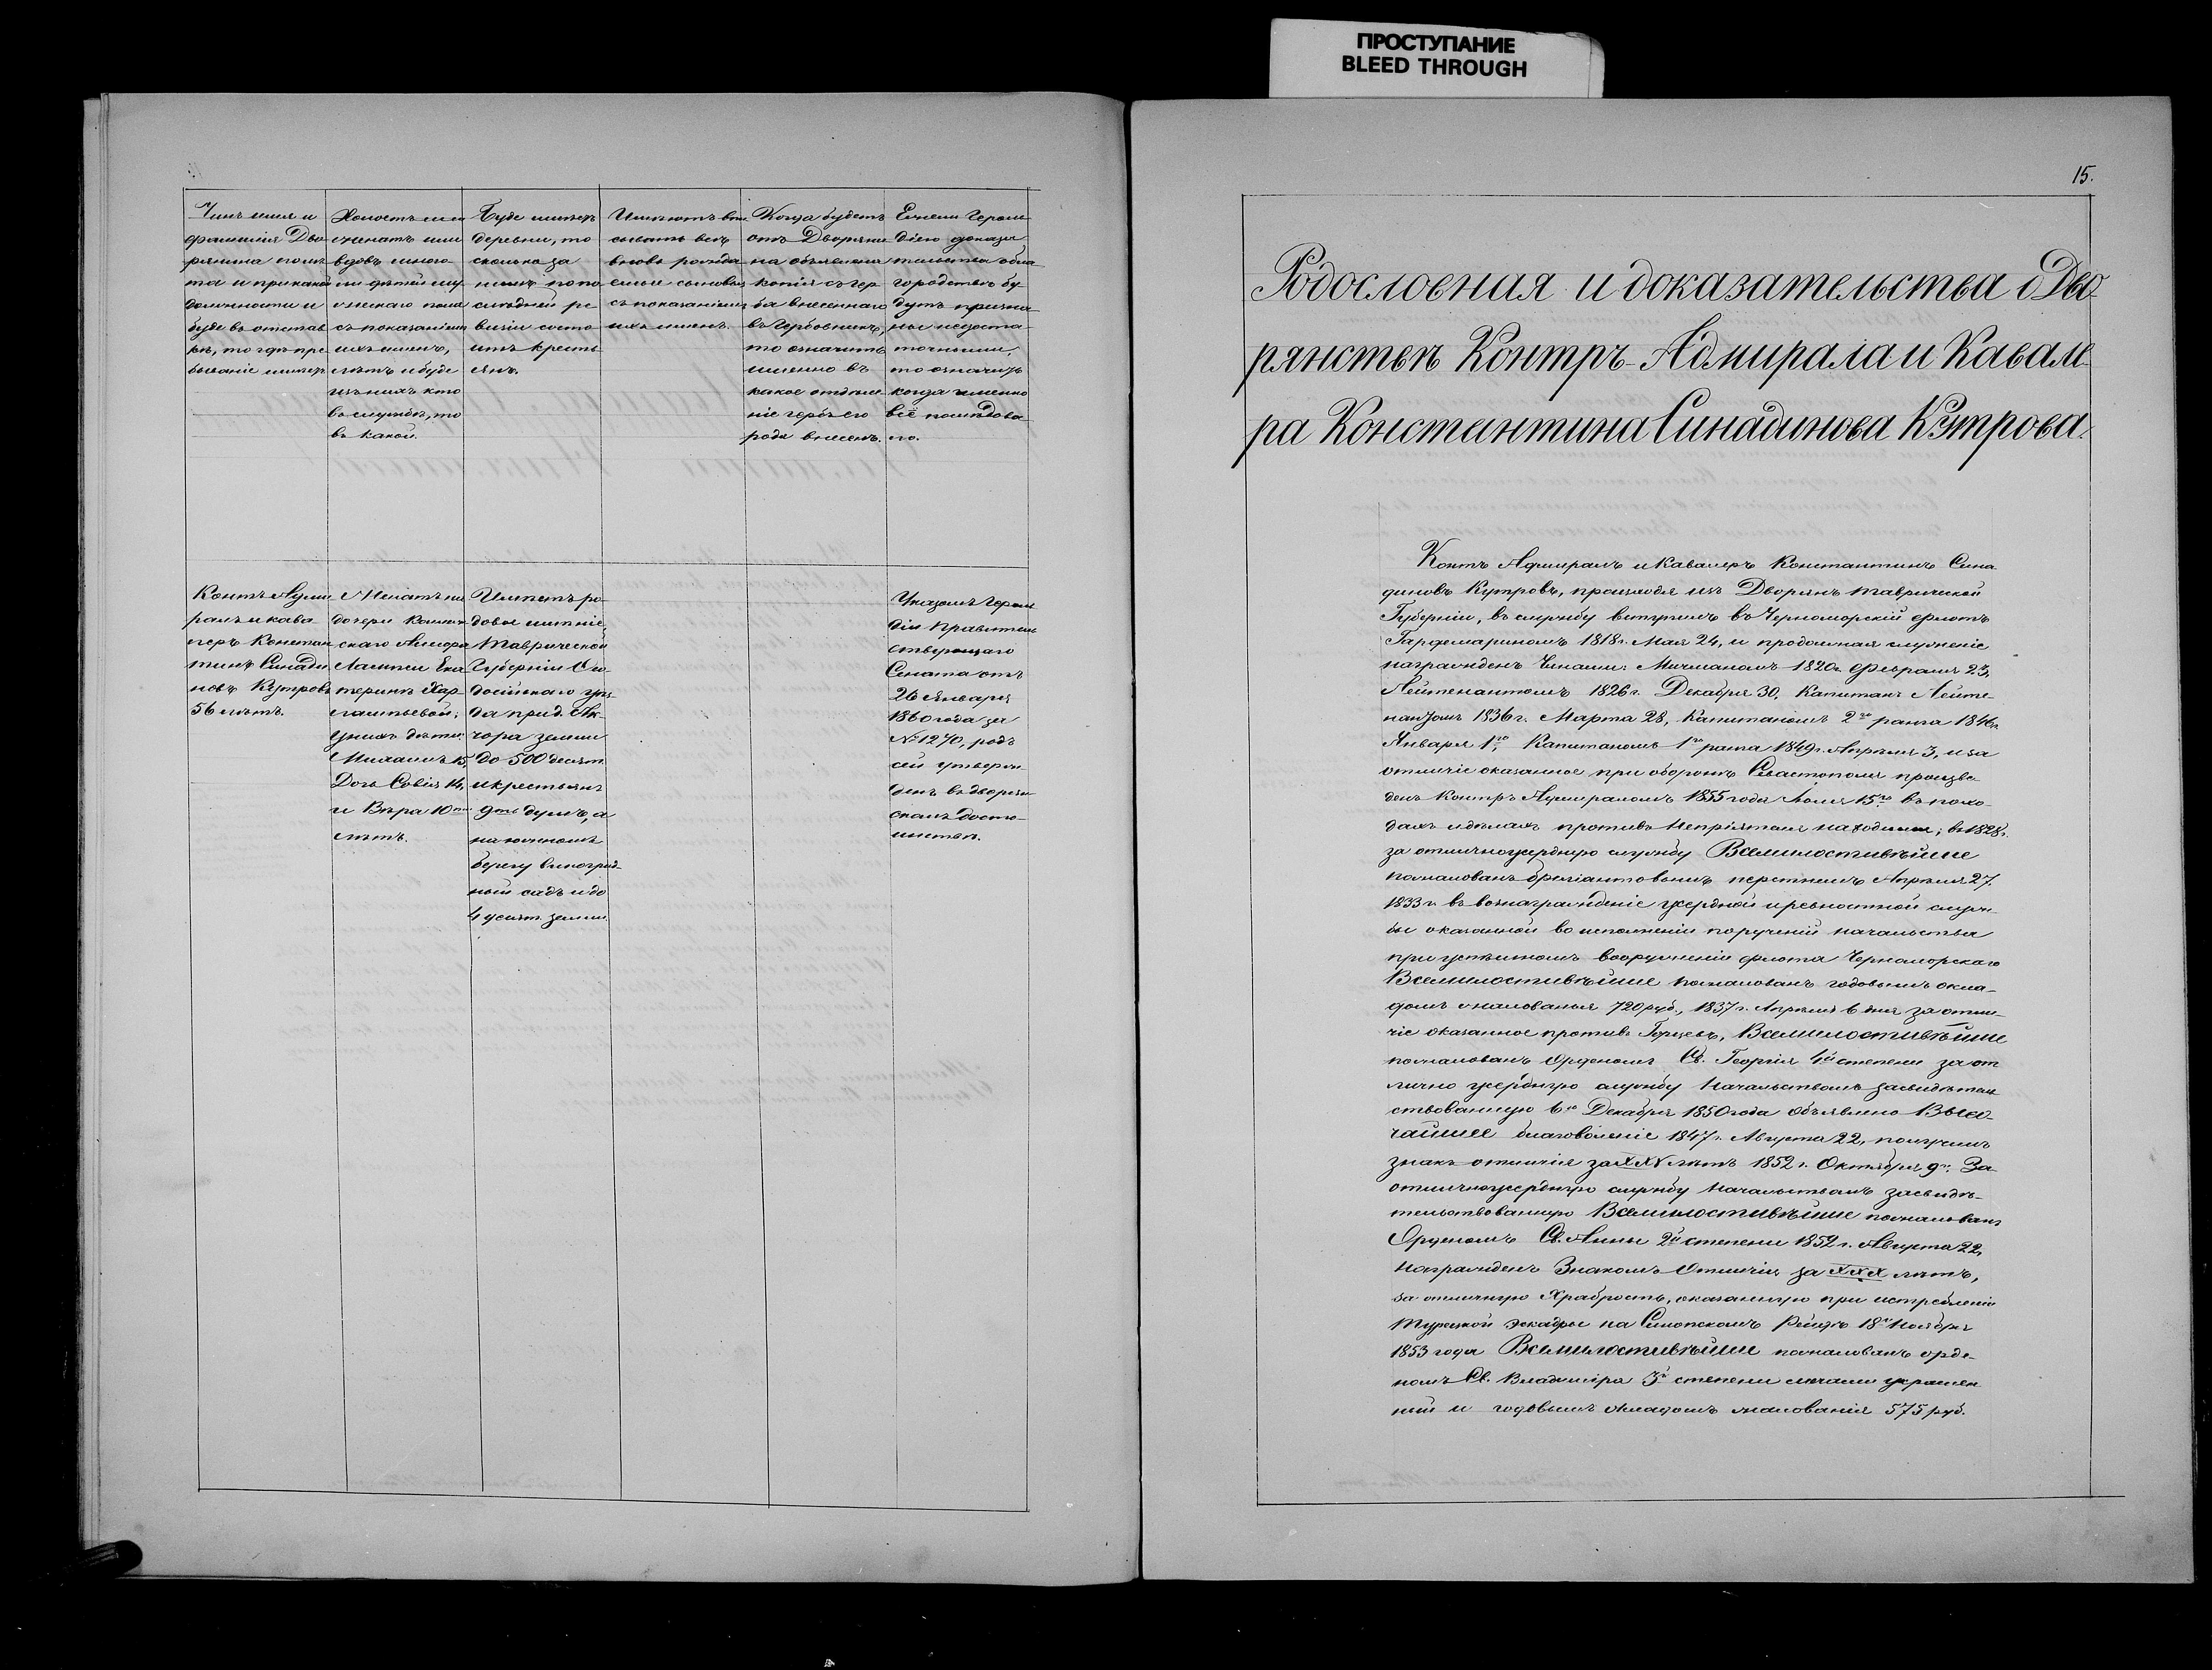 ПРОСТУПАНИЕ
BLEED THROUGH
Чинъ имя и
фамилія Дво-
рянина лѣта
та и при какой
должности и
буде въ отстав
кѣ, то гдѣ пре
бываніе имѣетъ
Холостъ или
женатъ или
вдовъ много
ли дѣтей му
жескаго пола
съ показаніемъ
ихъ именъ,
лѣтъ и буде
изъ нихъ кто
въ службѣ, то
въ какой.
Буде имѣетъ
деревни, то
сколько за
нимъ по по
слѣдней ре
визіи состо
итъ кресть
янъ.
сывать всѣхъ
вновь рожда
емые сыновья
съ показаніемъ
ихъ именъ.
Когда будетъ
отъ Дворяни
на объявлена
копія съ гер
ба внесеннаго
въ Гербовникъ,
то означить
именно въ
какое отдѣле
ніе гербъ его
рода внесенъ.
Ежели Героль
діею доказа
тельства о бла
городствѣ бу
дутъ призна
ны недоста-
точными,
то означить
когда именно
всё послѣдова
ло.
Контъ Адми
ралъ и кава
леръ Констан
тинъ Синади
новъ Кутровъ
56 лѣтъ.
Женатъ на
дочери
Екa
теринѣ Хар
лампьевой;
у нихъ дѣти:
Михаилъ 15,
Дочь Софія 14,
и Вѣра 10ти
лѣтъ.
Имѣетъ ро
довое имѣніе,
Таврической
Губерніи Ѳео
досійскаго уѣз
да при д. Ак
чора земли
до 500 десят.
и крестьянъ
9ть душъ, а
на южномъ
берегу виноград-
ный садъ и до
4 десят. земли
Указомъ Героль
діи Правитель
ствующаго
Сената отъ
26 Января
1860 года за
№ 1270, родъ
сей утверж
денъ въ дворян
скомъ досто-
инствѣ.
15.
Родословная и доказательства о Дво-
рянствѣ Контръ-Адмирала и Кавале-
ра Константина Синадинова Кутрова.
Контъ Адмиралъ и Кавалеръ Константинъ Сина
диновъ Кутровъ, происходя изъ Дворянъ Таврической
Губерніи, въ службу вступилъ въ Черноморскій флотъ
Гардемариномъ 1818 г. Мая 24, и продолжая служеніе
награжденъ Чинами: Мичманомъ 1820 г. Февраля 23,
Лейтенантомъ 1826 г. Декабря 30, Капитанъ Лейте-
нантомъ 1836 г. Марта 28, Капитаномъ 2го ранга 1846 г.
Января 1го, Капитаномъ 1го ранга 1849 г. Апрѣля 3, и за
отличіе оказанное при оборонѣ Севастополя произве
денъ Контръ Адмираломъ 1855 года Іюля 15го въ похо-
дахъ и дѣлахъ противъ Непріятеля находился; въ 1828 г.
за отличноусердную службу Всемилостивѣйше
пожалованъ бриліантовымъ перстнемъ Апрѣля 27.
1833 г. въ вознагражденіе усердной и ревностной служ-
бы оказанной во исполненіи порученій начальства
при успѣшномъ вооруженіи флота Черноморскаго
Всемилостивѣйше пожалованъ годовымъ окла-
домъ жалованья 720 руб., 1837 г. Апрѣля 6 дня за отли-
чіе оказанное противъ Горцевъ, Всемилостивѣйше
пожалованъ Орденомъ Св. Георгія 4й степени за от
лично усердную службу Начальствомъ засвидѣтель
ствованную 6го Декабря 1850 года объявлено Высо-
чайшее благоволеніе 1847 г. Августа 22, получилъ
знакъ отличія за XXV лѣтъ 1852 г. Октября 9го. За
отличноусердную службу Начальствомъ засвидѣ-
тельствованную Всемилостивѣйше пожалованъ
Орденомъ Св. Анны 2й степени 1852 г. Августа 22,
Награжденъ Знакомъ Отличія за XXX лѣтъ,
за отличную Храбрость, оказанную при истребленіи
Турецкой эскадры на Синопскомъ Рейдѣ 18го Ноября
1853 года Всемилостивѣйше пожалованъ орде-
номъ Св. Владиміра 3й степени мечами украшен
ный и годовымъ окладомъ жалованія 575 руб.